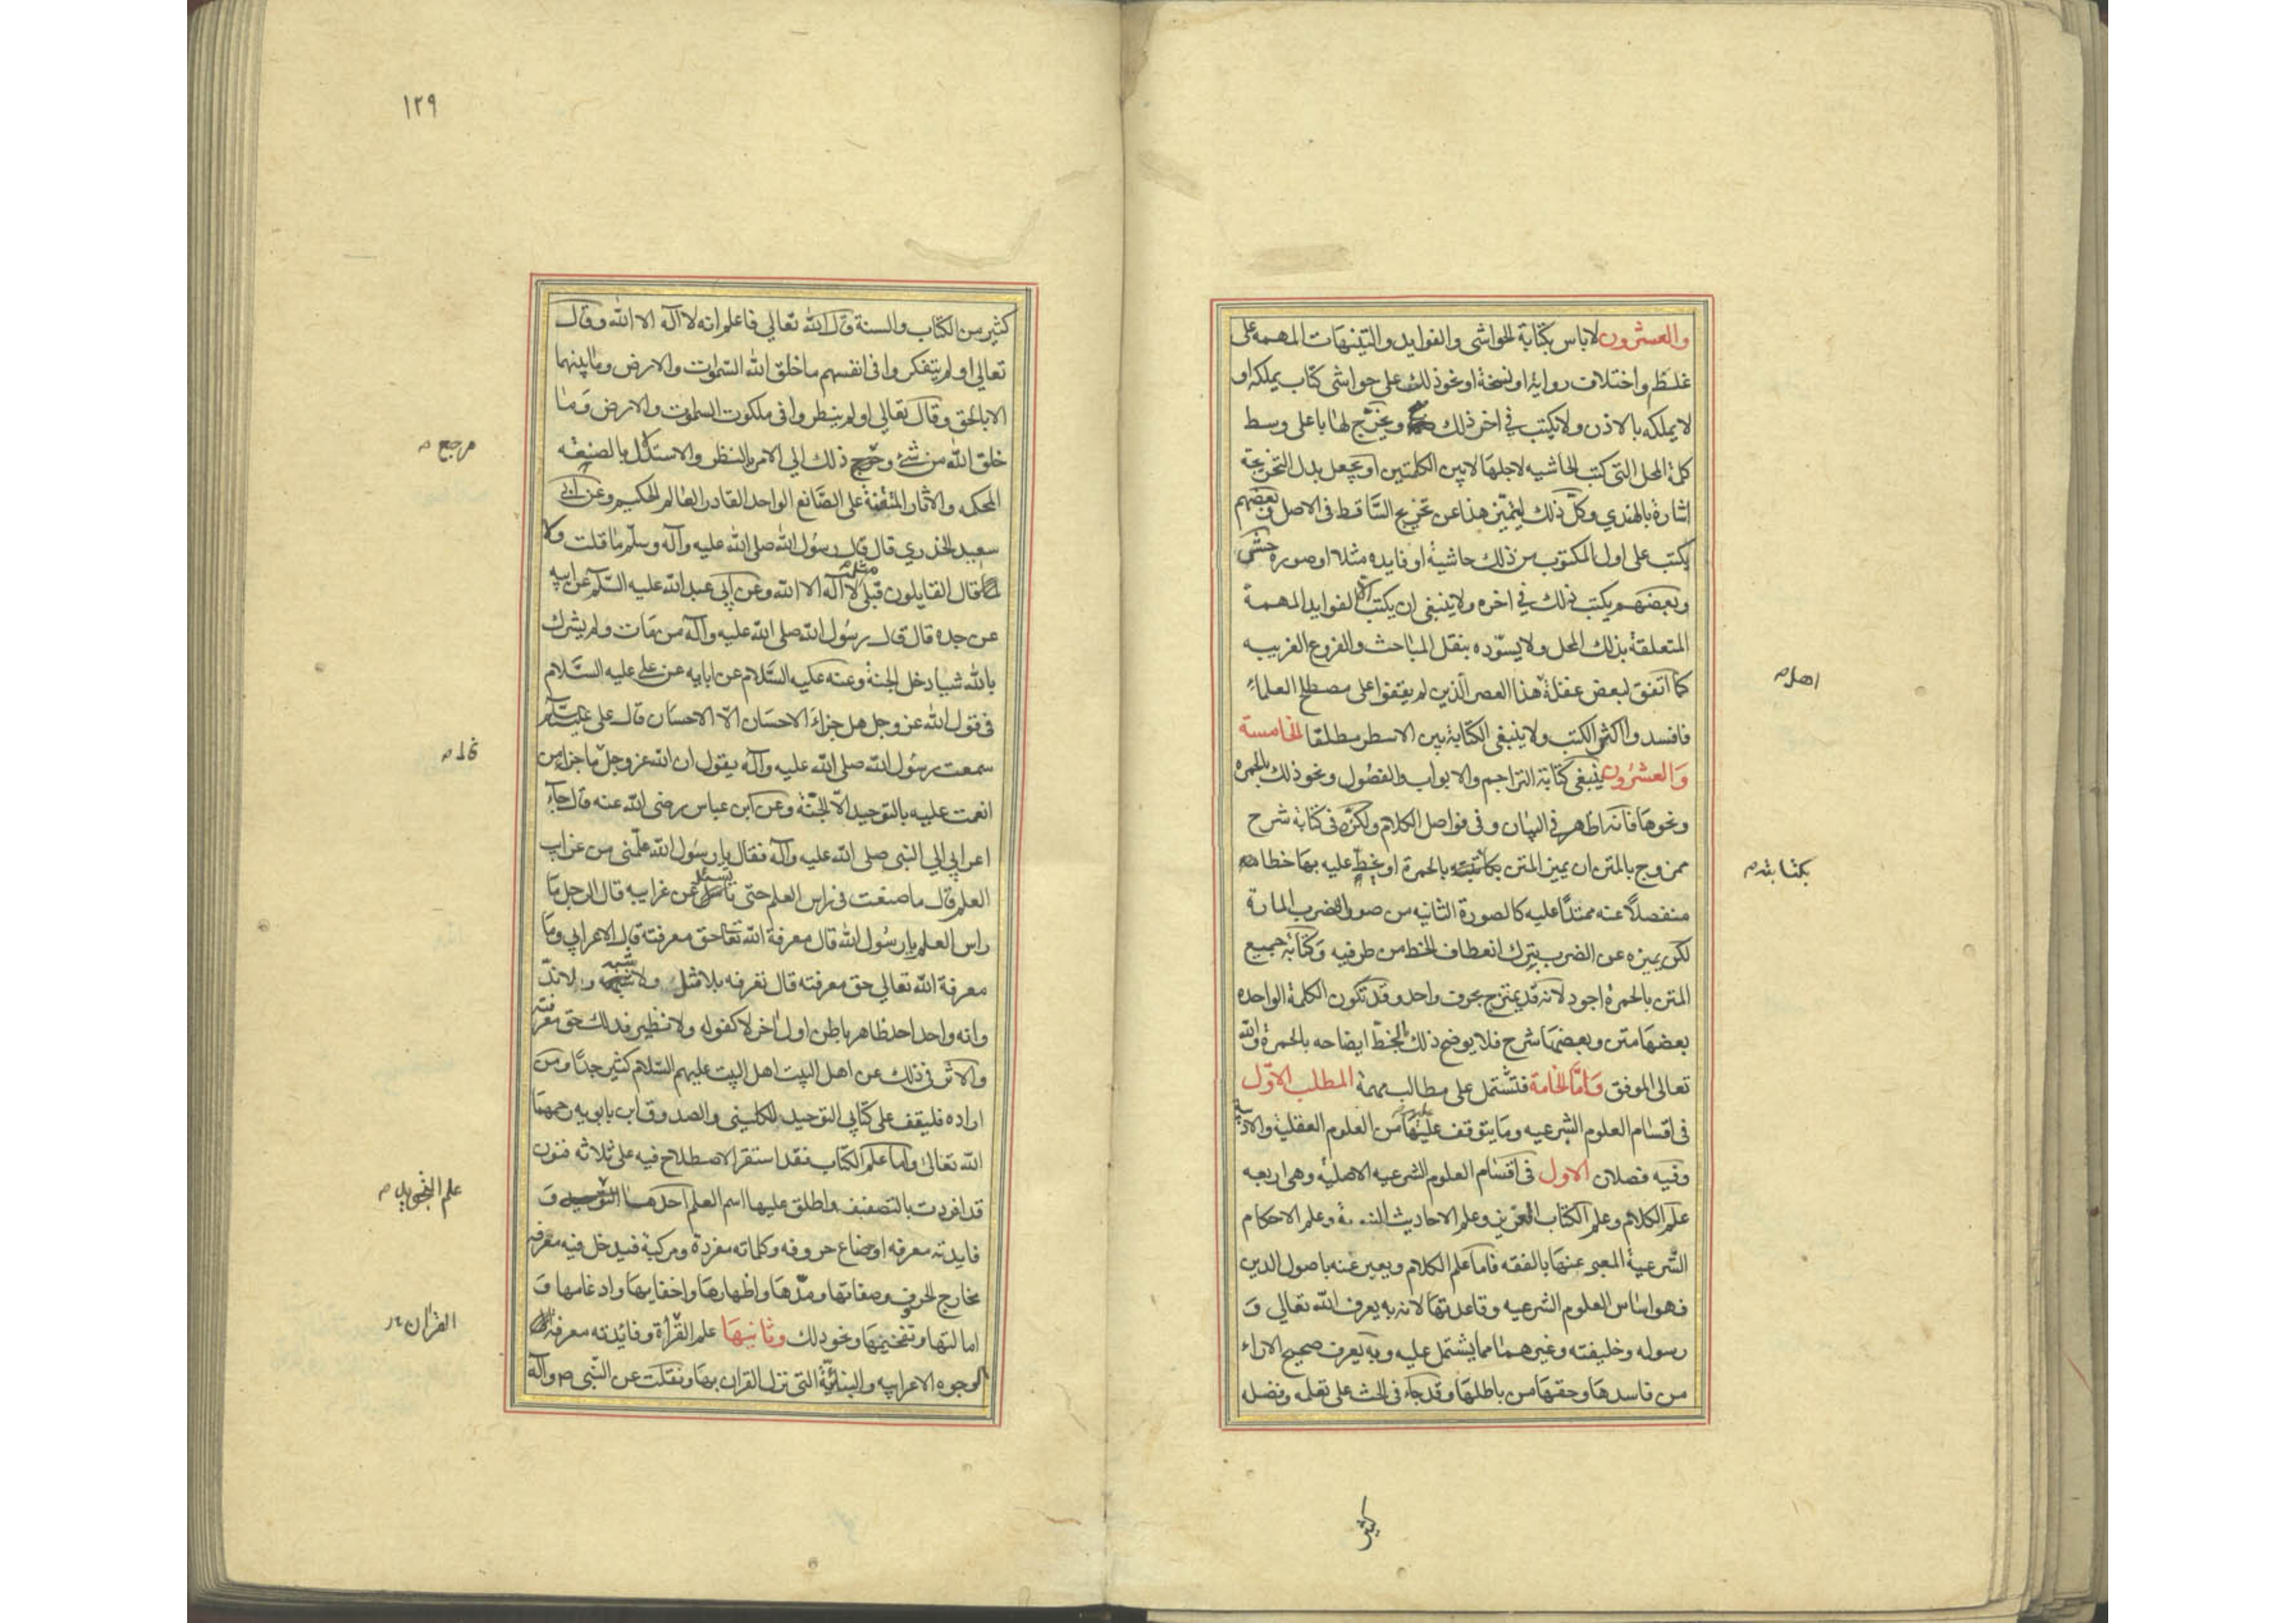 والعشرون لاباس بكتابة الحواشي والفوايد والتنبيهات المهمة على
غلط واختلاف رواية او نسخة او نحو ذلك على حواشي كتاب يملكه او
لا يملكه بالاذن ولا يكتب في اخر ذلك صح ويخرج لها باعلى وسط
كلمة المحل التي كتب الحاشيه لاجلها لا بين الكلمتين او يجعل بدل التخريجة
اشارة بالهندي وكل ذلك ليتميز هذا عن تخريج الساقط في الاصل وبعضهم
يكتب على اول المكتوب من ذلك حاشية او فايده مثلا او صورة حشى
وبعضهم يكتب ذلك في اخره ولا ينبغي ان يكتب الا الفوايد المهمة
المتعلقة بذلك المحل ولا يسوده بنقل المباحث والفروع الغريبه
كما اتفق لبعض غفلة هذا العصر الذين لم يقفوا على مصطلح العلماء
اهل م
فافسدوا اكثر الكتب ولا ينبغي الكتابة بين الاسطر مطلقا الخامسة
والعشرون ينبغي كتابة التراجم والابواب والفصول ونحو ذلك بالحمره
ونحوها فانه اظهر في البيان وفي فواصل الكلام ولكن في كتابة شرح
ممزوج بالمتن ان يميز المتن بكتبه بالحمرة او يخط عليه بها خطا
بكتابته م
منفصلا عنه ممتدا عليه كالصورة الثانيه من صور الضرب المارة
لكن يميزه عن الضرب بترك انعطاف الخط من طرفيه وكتابة جميع
المتن بالحمرة اجود لانه قد يمتزج بحرف واحد وقد تكون الكلمة الواحده
بعضها متن وبعضها شرح فلا يوضح ذلك بالخط ايضاحه بالحمرة والله
تعالى الموفق واما الخاتمة فتشتمل على مطالب مهمة المطلب الاول
في اقسام العلوم الشرعيه وما يتوقف عليها من العلوم العقلية والادبية
وفيه فصلان الاول في اقسام العلوم الشرعيه الاصلية وهي اربعه
علم الكلام وعلم الكتاب العزيز وعلم الاحاديث النبوية وعلم الاحكام
الشرعية المعبر عنها بالفقه فاما علم الكلام ويعبر عنه باصول الدين
فهو اساس العلوم الشرعيه وقاعدتها لانه به يعرف الله تعالى و
رسوله وخليفته وغيرهما مما يشتمل عليه وبه يعرف صحيح الاراء
من فاسدها وحقها من باطلها وقد جاء في الحث على تعلمه وفضله
كثير
١٢٩
كثير من الكتاب والسنة قال الله تعالى فاعلم انه لا اله الا الله وقال
تعالى او لم يتفكروا في انفسهم ما خلق الله السموات والارض وما بينهما
الا بالحق وقال تعالى او لم ينظروا في ملكوت السموت والارض وما
خلق الله من شئ ذلك الى الامر بالنظر والاستدلال بالصنعه
مرجع م
المحكمه والاثار المتقنة على الصانع الواحد القادر العالم الحكيم وعن ابي
سعيد الخدري قال قال رسول الله صلى الله عليه وآله وسلم ما قلت ولا
قال القايلون قبلي مثل لا اله الا الله وعن ابي عبد الله عليه السلم عن ابيه
عن جده قال قال رسول الله صلى الله عليه وآله من مات ولم يشرك
بالله شيا دخل الجنة وعنه عليه السلام عن ابايه عن علي عليه السلام
في قول الله عز وجل هل جزاء الاحسان الا الاحسان قال علي عليه السلم
سمعت رسول الله صلى الله عليه وآله يقول ان الله عز وجل ما جزاء من
قال م
انعمت عليه بالتوحيد الا الجنة وعن ابن عباس رضي الله عنه قال جاء
اعرابي الى النبي صلى الله عليه وآله فقال يا رسول الله علمني من غرايب
العلم قال ما صنعت في راس العلم حتى تسئل عن غرايبه قال الرجل ما
راس العلم يا رسول الله قال معرفة الله تعا حق معرفته قال الاعرابي وما
معرفة الله تعالى حق معرفته قال تعرفه بلا مثل ولا شبه ولا ند
وانه واحد احد ظاهر باطن اول اخر لا كفو له ولا نظير فذلك حق معرفته
والاثر في ذلك عن اهل البيت اهل البيت عليهم السلام كثير جدا ومن
اراده فليقف على كتابي التوحيد للكليني والصدوق ابن بابويه رحمهما
الله تعالى واما علم الكتاب فقد استقر الاصطلاح فيه على ثلاثة فنون
قد افردت بالتصنيف واطلق عليها اسم العلم احدها و
علم التجويد م
فايدته معرفه اوضاع حروفه وكلماته مفردة ومركبة فيدخل فيه معرفة
مخارج الحروف وصفاتها ومدها واظهارها واخفايها وادغامها و
امالتها وتفخيمها ونحو ذلك وثانيها علم القرأة وفائدته معرفة
القرآن
الوجوه الاعرابيه والبنائية التي نزل القران بها ونقلت عن النبي ص وآله